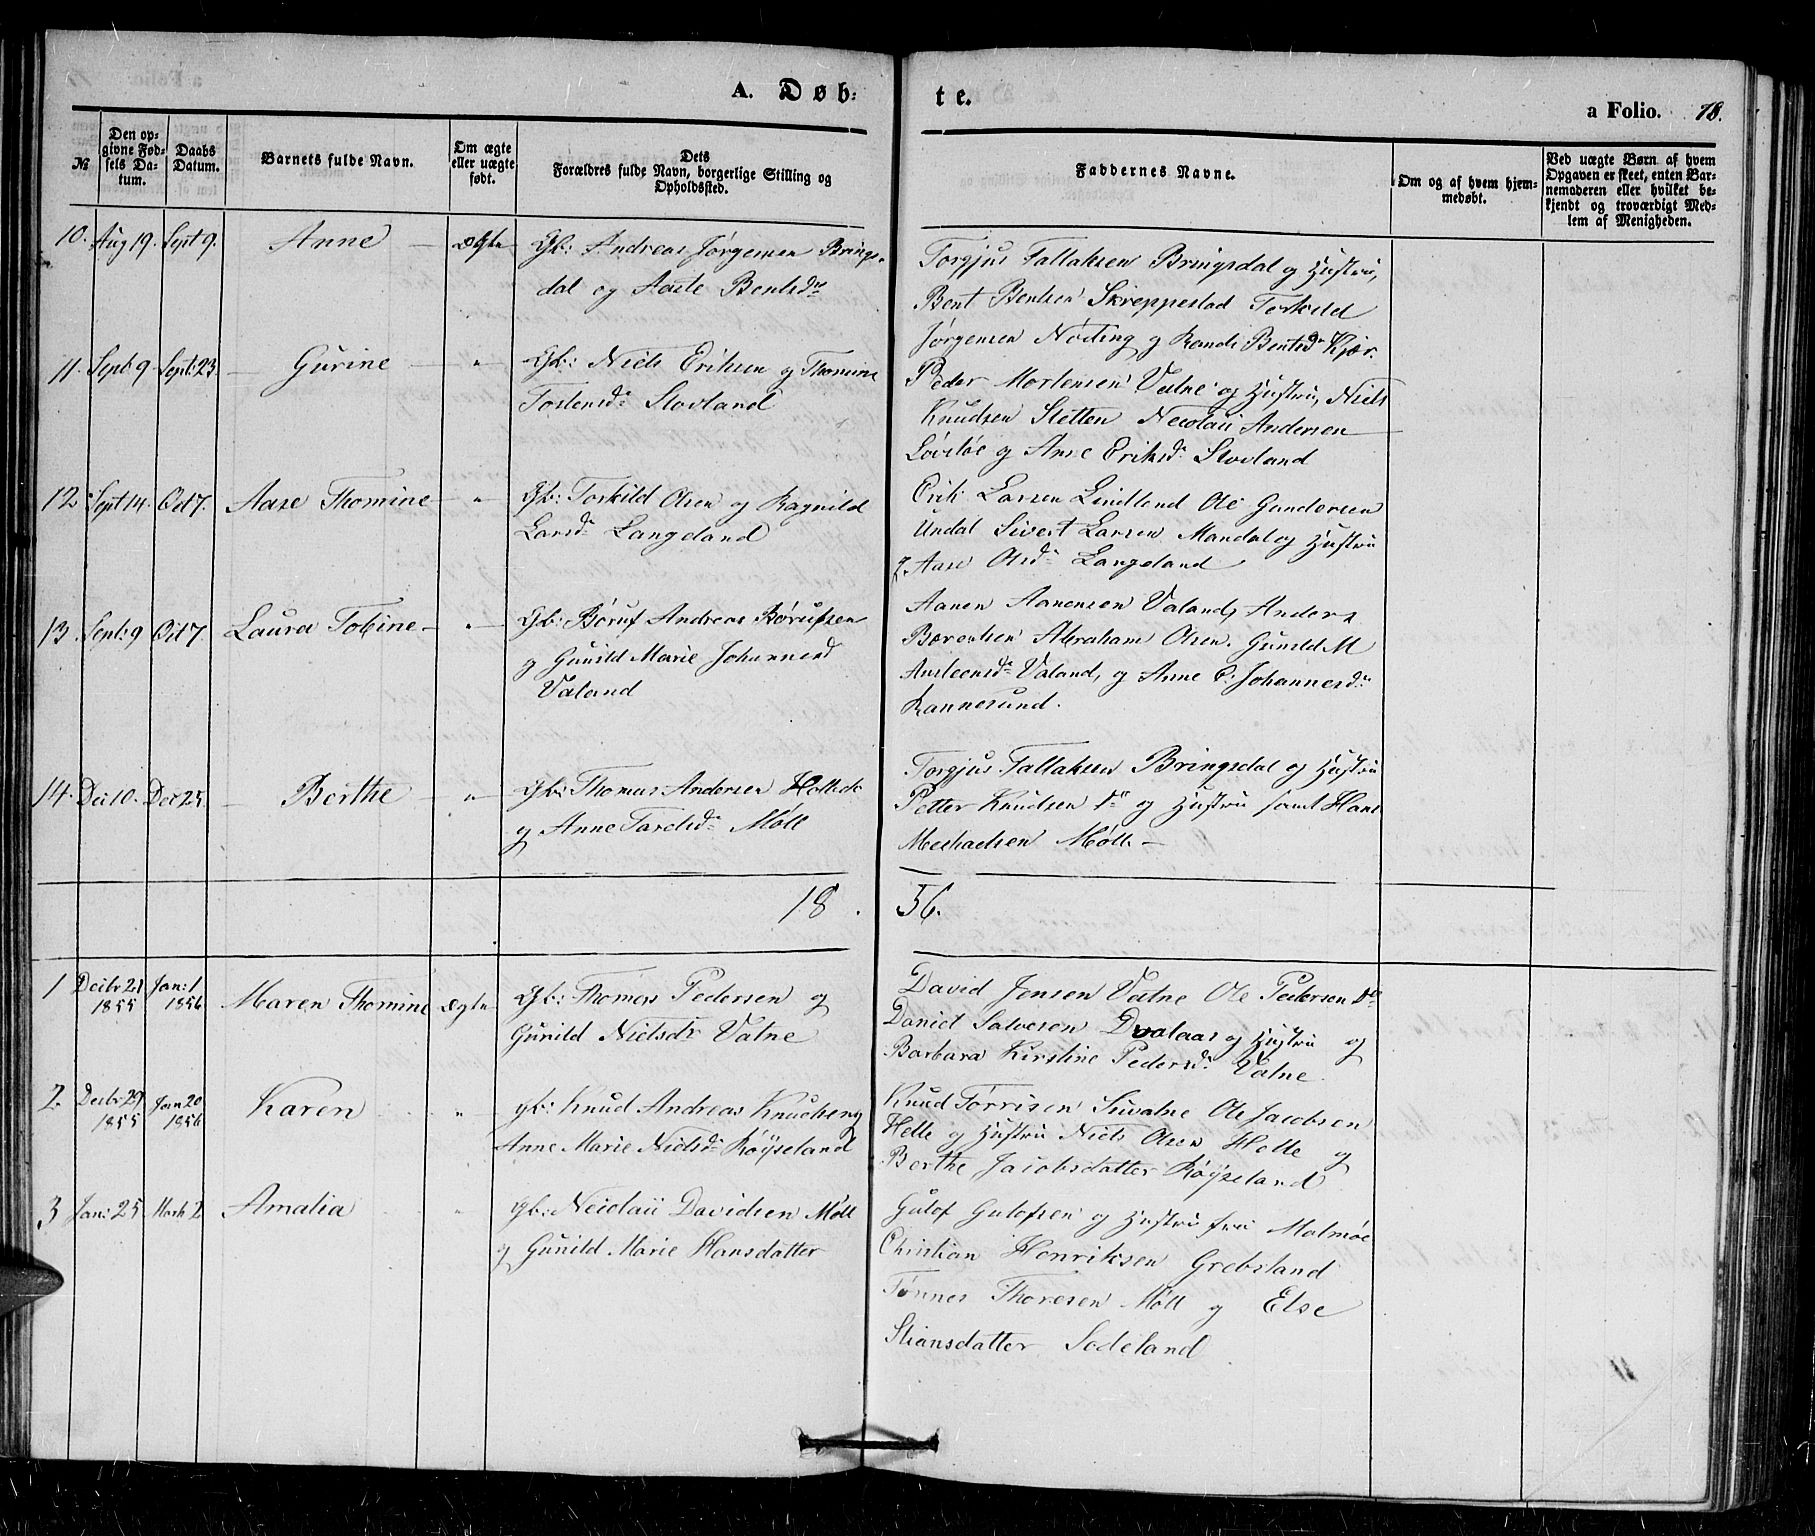 A. Døb: te.
a Folio. 18.
№
Den op-
givne Fød-
sels Da-
tum.
Daabs
Datum.
Barnets fulde Navn.
Om ægte
eller uægte
født.
Dets
Forældres fulde Navn, borgerlige Stilling og
Opholdssted.
Faddernes Navne.
Om og af hvem hjem-
medøbt.
Ved uægte Børn af hvem
Opgaven er skeet, enten Bar-
nemoderen eller hvilket be-
kjendt og troværdigt Med-
lem af Menigheden.
10. Aug 19. Sept 9. Anne — ægte Gb: Andreas Jørgensen Brings-
dal og Aaste Bentsdr
Torgjus Tallaksen Bringsdal og Hustru,
Bent Bentsen Skreppestad Torkild
Jørgensen Nøding og Rande Bentsdr Kjær.
11. Sept: 9 Sept: 23 — Gurine — " Gb: Niels Eriksen og Thomine
Tostensdr Stovland
Peder Mortensen Valne og Hustru, Niels
Knudsen Stetten Necolai Andersen
og Anne Eriksdr Stovland
12. Sept 14. Oct 7. Aase Thomine — " Gb: Torkild Olsen og Ragnild
Larsdr Langeland
Erik Larsen Lindland Ole Gundersen
Undal Sivert Larsen Mandal og Hustru
og Aase Olsdr Langeland
13. Sept: 9 Oct 7. Laura Tobine — " Gb: Børuf Andreas Børufsen
og Gunild Marie Johannesd
Valand
Aanen Aanensen Valand, Anders
Berentsen Abraham Olsen. Gunild M
Valand, og Anne C. Johannesdr
Rannesund.
14. Dec 10. Der 25 — Berthe — " Gb: Thomas Andersen
og Anne Tarelsdr Møll
Torgjus Tallaksen Bringsdal og Hustru
Petter Knudsen do og Hustru samt Hans
Mechaelsen Møll —
18 . 56.
1 Decbr 21 1855 Jan: 1 1856 Maren Thomine ægte Gb: Thomas Pedersen og
Gunild Nielsdr Valne
David Jensen Valne Ole Pedersen do
Daniel Salvesen Dvalaas og Hustru og
Barbara Kirstine Pedersdr Valne
2. Decbr 29 1855 Jan 20 1856 Karen " gb: Knud Andreas Knudsen og
Anne Marie Nielsdr Røyseland
Knud Torrisen Ole Jacobsen
Helle og Hustru Niels Olsen Helle og
Berthe Jacobsdatter Røyseland
3 Jan: 25 March 2 Amalia " gb: Neiolaii Davidsen Møll
og Gunild Marie Hansdatter
Gulof Gulofsen og Hustru fra Malmøe
Christian Henriksen Grebstand
Tønnes Thoresen Møll og Else
Stiansdatter Sodeland